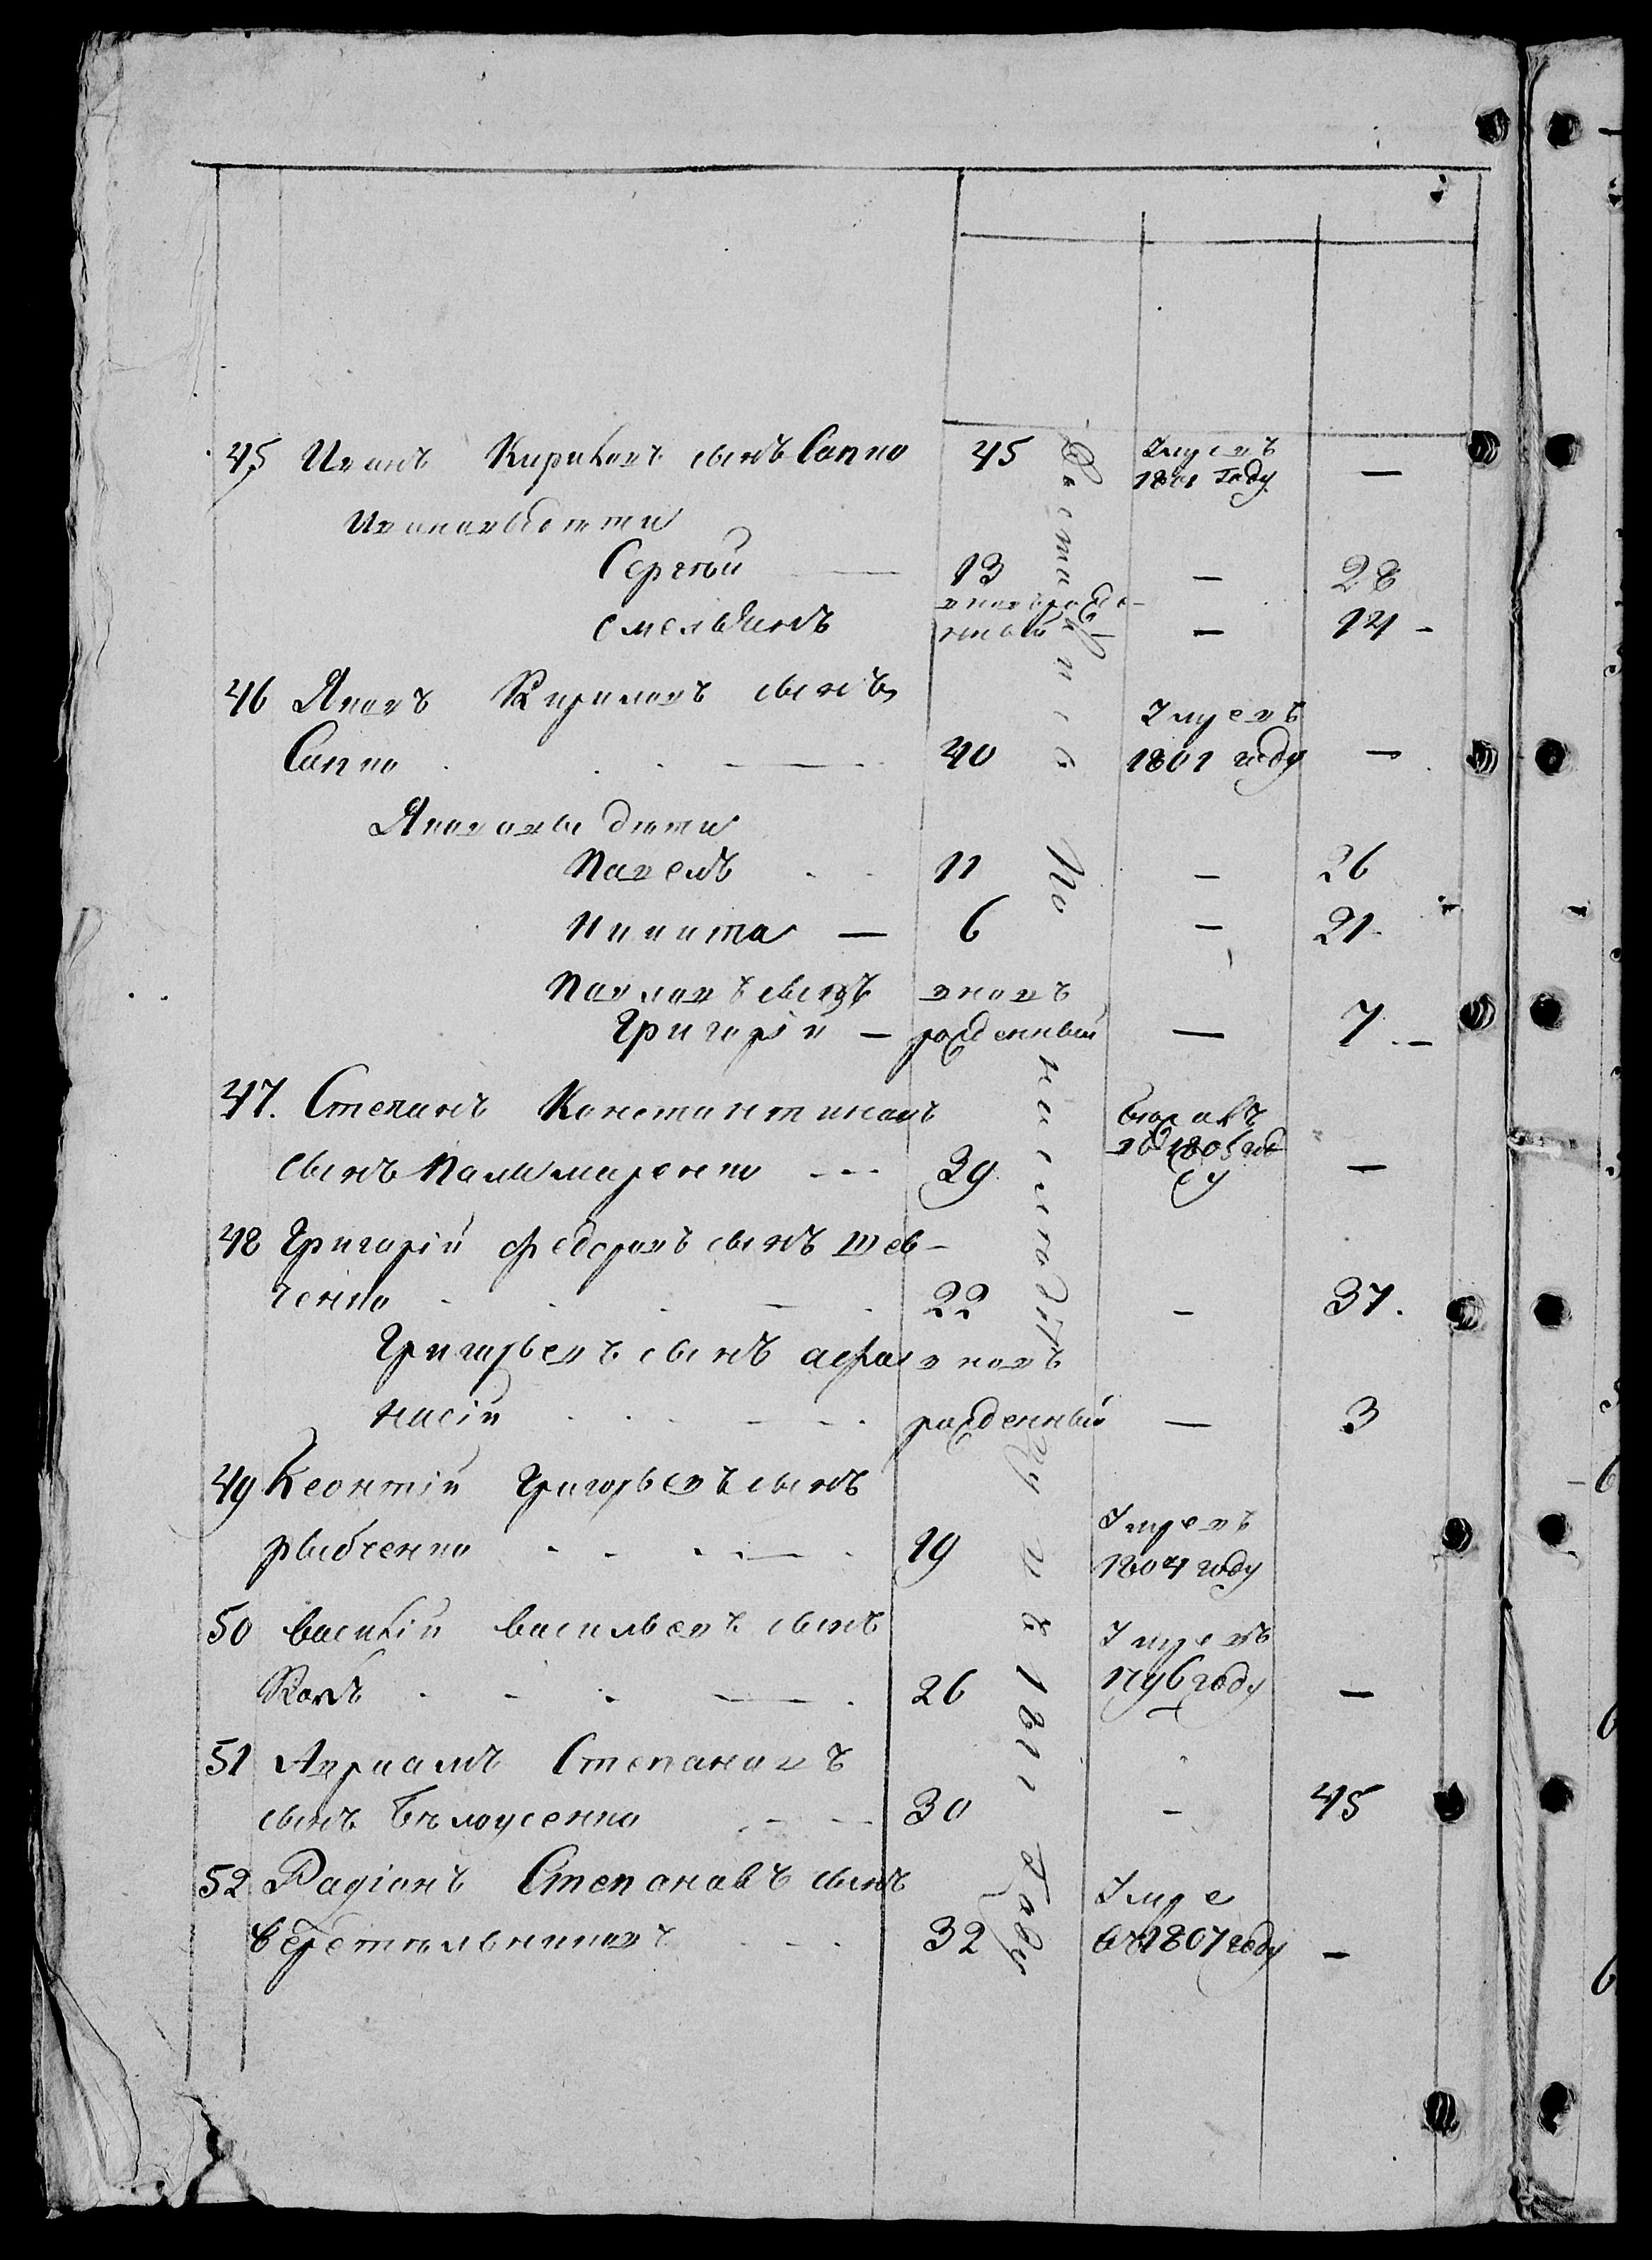 45 Иванъ Кириловъ сынъ Сапко 45 Умеръ 1801 году —
Ивановы дети
Сергѣй — 13 — 28
емельянъ вновь рожде-
нный — 14 -
46 Яковъ Кириловъ сынъ
Сапко . . . — 40 Умеръ 1801 году —
Яковлевы дѣти
Павелъ . . 11 — 26
Никита — 6 — 21
Павловъ сынъ вновъ
Григорій — рожденный — 7 . —
47. Степанъ Константиновъ
сынъ Паламаренко - - - 39 1805 году —
48 Григорій Федоровъ сынъ Шев-
ченко - . . — . 22 — 37.
Григорьевъ сынъ афа вновъ
насій . . . — - . рожденный — 3
49 Леонтій Григорьевъ сынъ
рыбченко . - . — . 19 Умеръ 1804 году
50 Василій Васильевъ сынъ
Ковъ . - . — . 26 Умеръ 1796 году —
51 Авраамъ Степановъ
сынъ Бѣлоусенко - — 30 — 45
52 Радіонъ Степановъ сынъ
веретѣльниковъ - - - 32 Умре въ 1807 году —
1811 Году